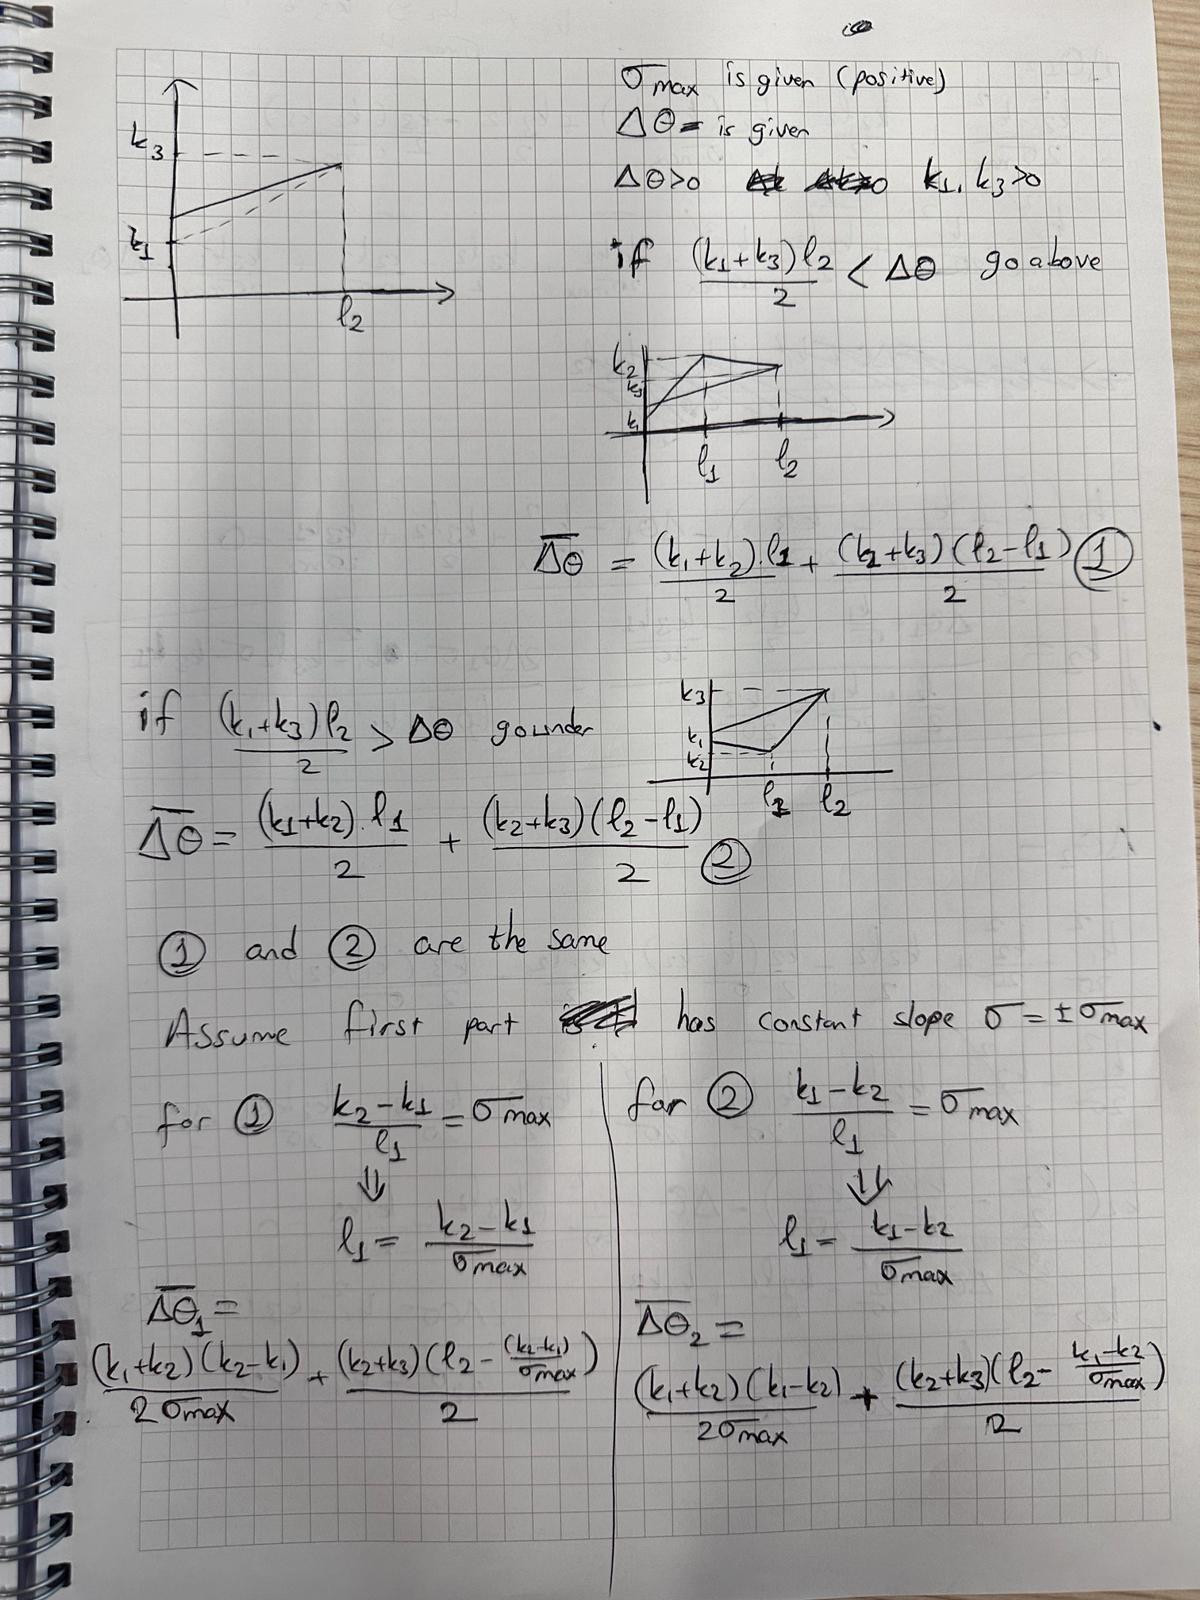 σmax is given (positive)
Δθ = is given
Δθ>0 k1, k3>0
k3
k1
l2
if (k1+k3)l2/2 < Δθ go above
k2
k3
k1
l1 l2
Δθ̅ = (k1+k2).l1/2 + (k2+k3)(l2-l1)/2 ①
if (k1+k3)l2/2 > Δθ go under
k3
k1
k2
l1 l2
Δθ̅ = (k1+k2).l1/2 + (k2+k3)(l2-l1)/2 ②
① and ② are the same
Assume first part has constant slope σ = ±σmax
for ① (k2-k1)/l1 = σmax
⇓
l1 = (k2-k1)/σmax
Δθ̅1 =
(k1+k2)(k2-k1)/2σmax + (k2+k3)(l2 - (k2-k1)/σmax)/2
for ② (k1-k2)/l1 = σmax
⇓
l1 = (k1-k2)/σmax
Δθ̅2 =
(k1+k2)(k1-k2)/2σmax + (k2+k3)(l2 - (k1-k2)/σmax)/2